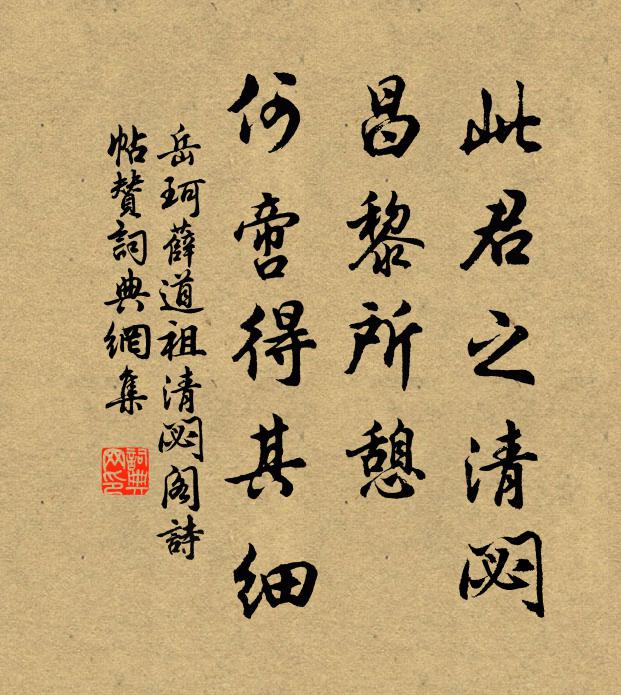 此君之清閟
昌黎所憩
何啻得其細
岳珂薛道祖清閟阁詩
帖贊詞典網集
詞典网印